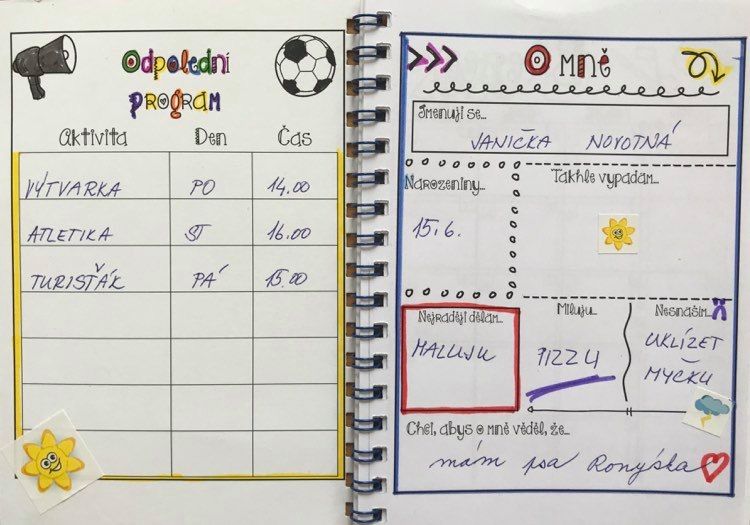 Odpolední
program
Aktivita Den Čas
VÝTVARKA PO 14.00
ATLETIKA ST 16.00
TURISŤÁK PÁ 15.00
O mně
Jmenuji se...
JANIČKA NOVOTNÁ
Narozeniny...
15.6.
Takhle vypadám...
Nejraději dělám...
MALUJU
Miluju...
PIZZU
Nesnáším...
UKLÍZET
MYČKU
Chci, abys o mně věděl, že...
mám psa Ronýska